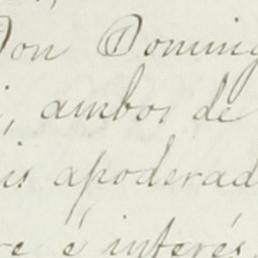 Don Doming
, ambos de
is apoderad
re é interés